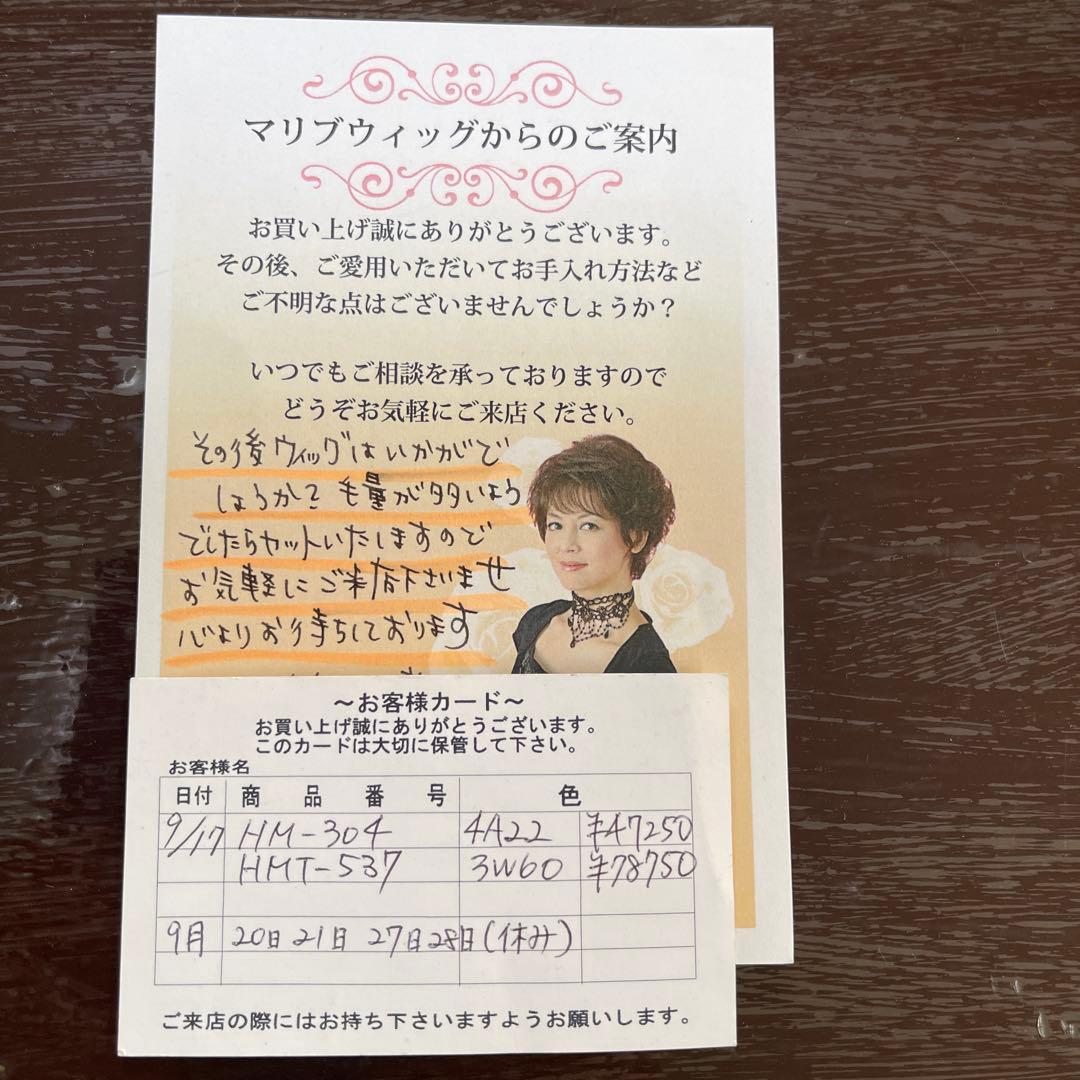 マリブウィッグからのご案内
お買い上げ誠にありがとうございます。
その後、ご愛用いただいてお手入れ方法など
ご不明な点はございませんでしょうか？
いつでもご相談を承っておりますので
どうぞお気軽にご来店ください。
その後ウィッグはいかがで
しょうか？毛量が多いよう
でしたらカットいたしますので
お気軽にご来店下さいませ
心よりお待ちしております
〜お客様カード〜
お買い上げ誠にありがとうございます。
このカードは大切に保管して下さい。
お客様名
日付 商品番号 色
9/17 HM-304 4A22 ¥47250
HMT-537 3W60 ¥78750
9月 20日 21日 27日 28日 (休み)
ご来店の際にはお持ち下さいますようお願いします。